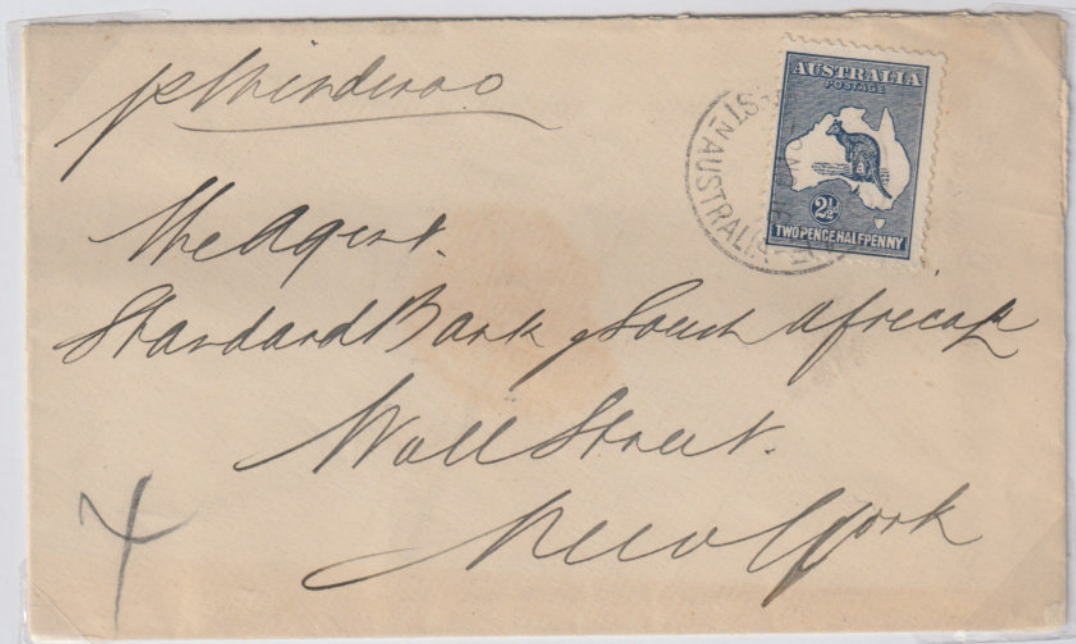 p Minderoo
AUSTRALIA
POSTAGE
2½d
TWO PENCE HALFPENNY
STN AUSTRALIA
The Agent.
Standard Bank of South Africa
Wall Street.
New York